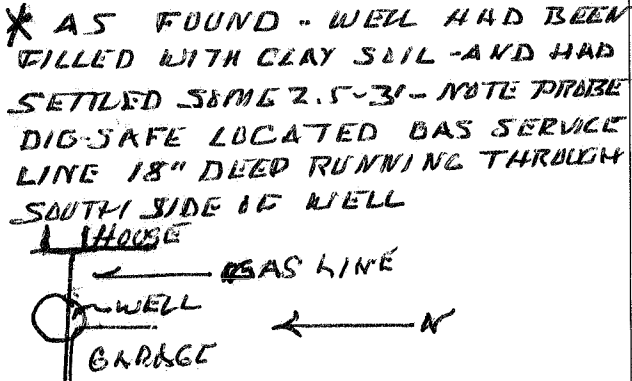 * AS FOUND - WELL HAD BEEN
FILLED WITH CLAY SOIL - AND HAD
SETTLED SOME 2.5-3' - NOTE PROBE
DIG-SAFE LOCATED GAS SERVICE
LINE 18" DEEP RUNNING THROUGH
SOUTH SIDE OF WELL
HOUSE
GAS LINE
WELL
N
GARAGE